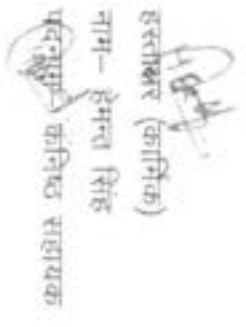 हस्ताक्षर (कार्मिक)
नाम – हेमन्त सिंह
पदनाम – कनिष्ठ सहायक